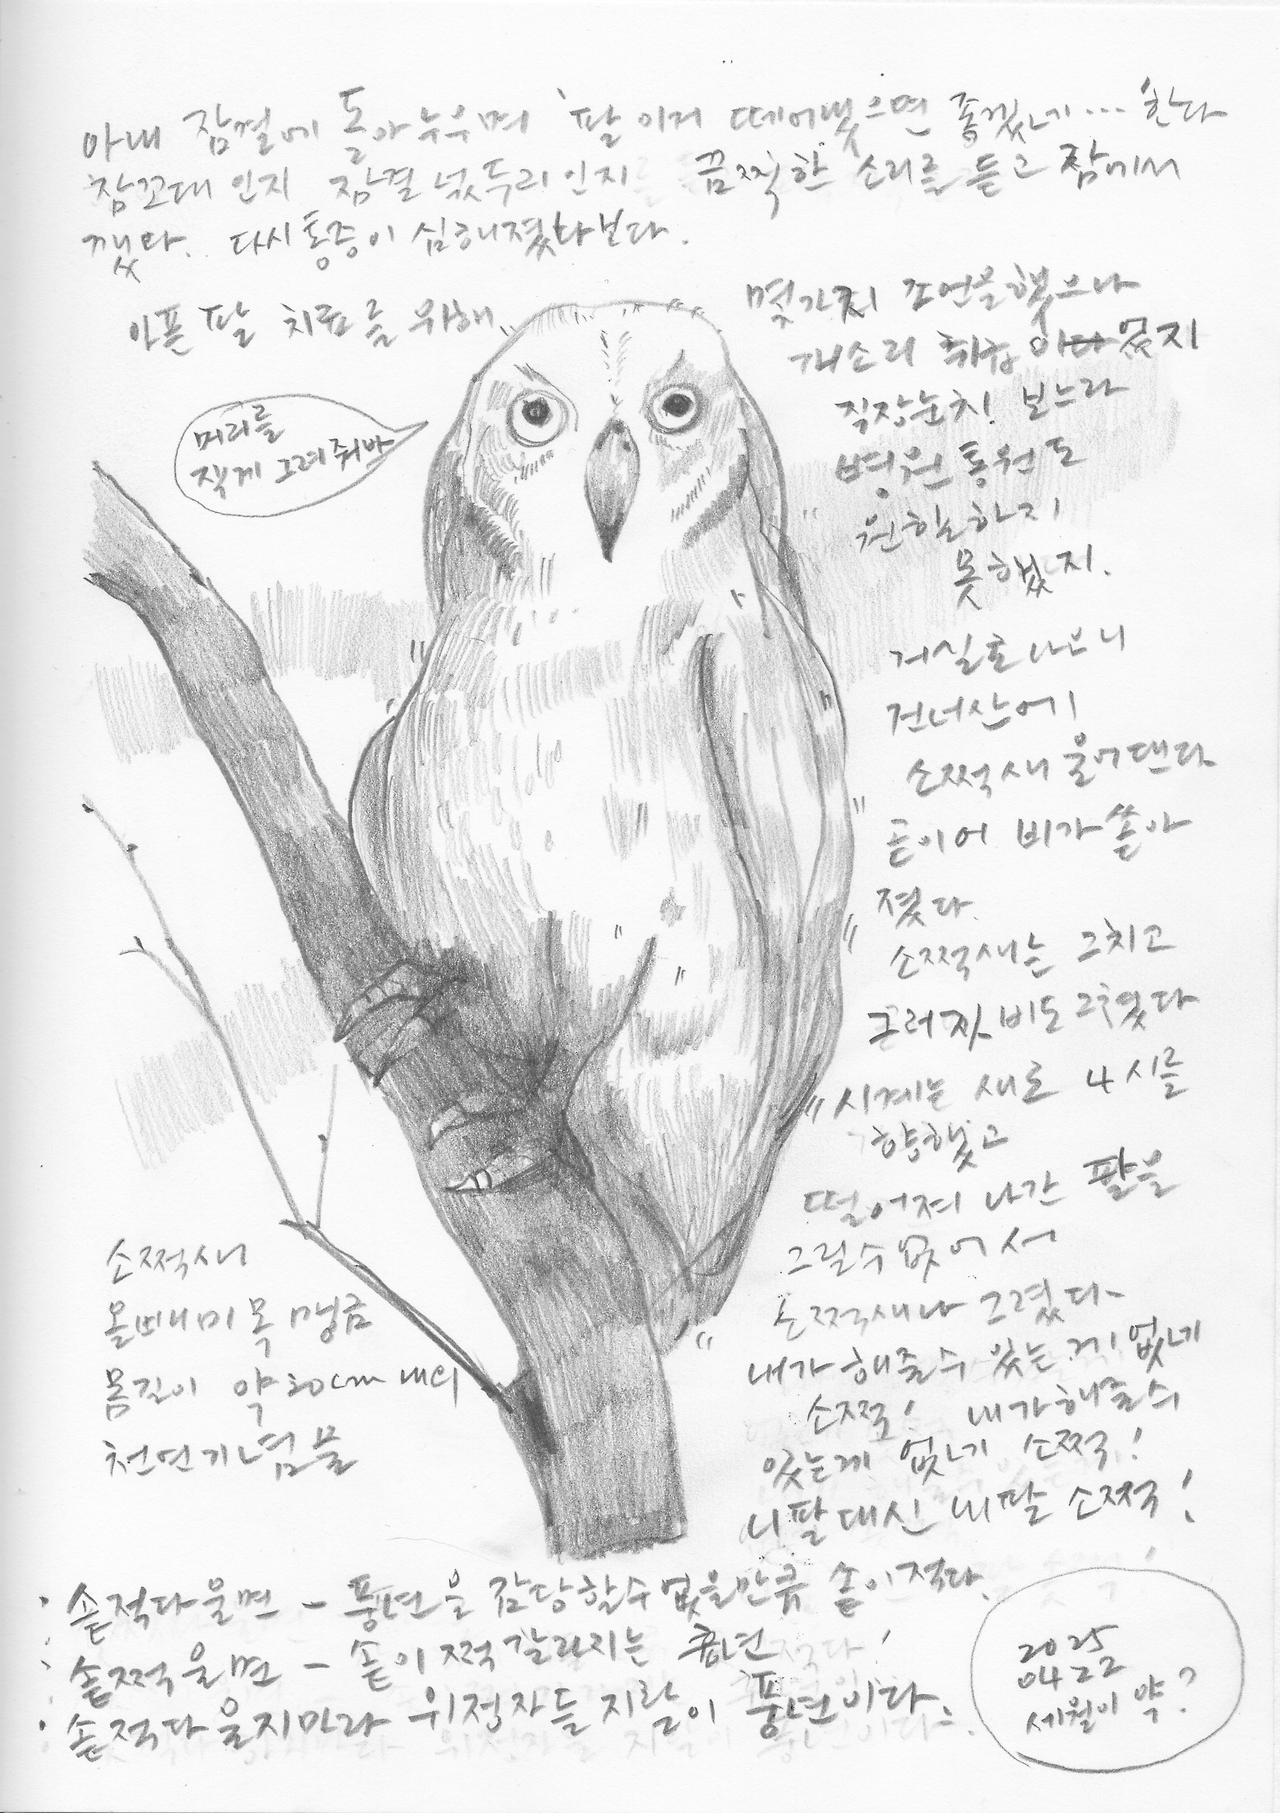 아내 잠결에 돌아누우며 '팔 이거 떼어냈으면 좋겠네... 한다
잠꼬대 인지 잠결 넋두리인지 끔찍한 소리를 듣고 잠에서
깼다. 다시 통증이 심해졌나보다.
아픈 팔 치료를 위해
몇가지 조언을 했으나
개소리 취급
직장눈치! 보느라
병원 통원도
원활하지
못했지.
머리를
작게 그려줘봐
거실로 나오니
건너산에
소쩍새 울어댄다
곧이어 비가 쏟아
졌다.
소쩍새는 그치고
그러자 비도 그쳤다
시계는 새로 4시를
향했고
떨어져 나간 팔을
그릴수 없어서
소쩍새나 그렸다-
내가 해줄수 있는게 없네
소쩍! 내가해줄수
있는게 없네 소쩍!
니팔대신 내팔 소쩍!
소쩍새
올빼미목
몸길이 약 20cm 내외
천연기념물
: 솥적다울면 - 풍년을 감당할수 없을만큼 솥이적다.
: 솥쩍울면 - 솥이 쩍갈라지는 흉년
: 솥적다 울지마라 위정자들 지랄이 풍년이다.
2025
04 22
세월이 약?